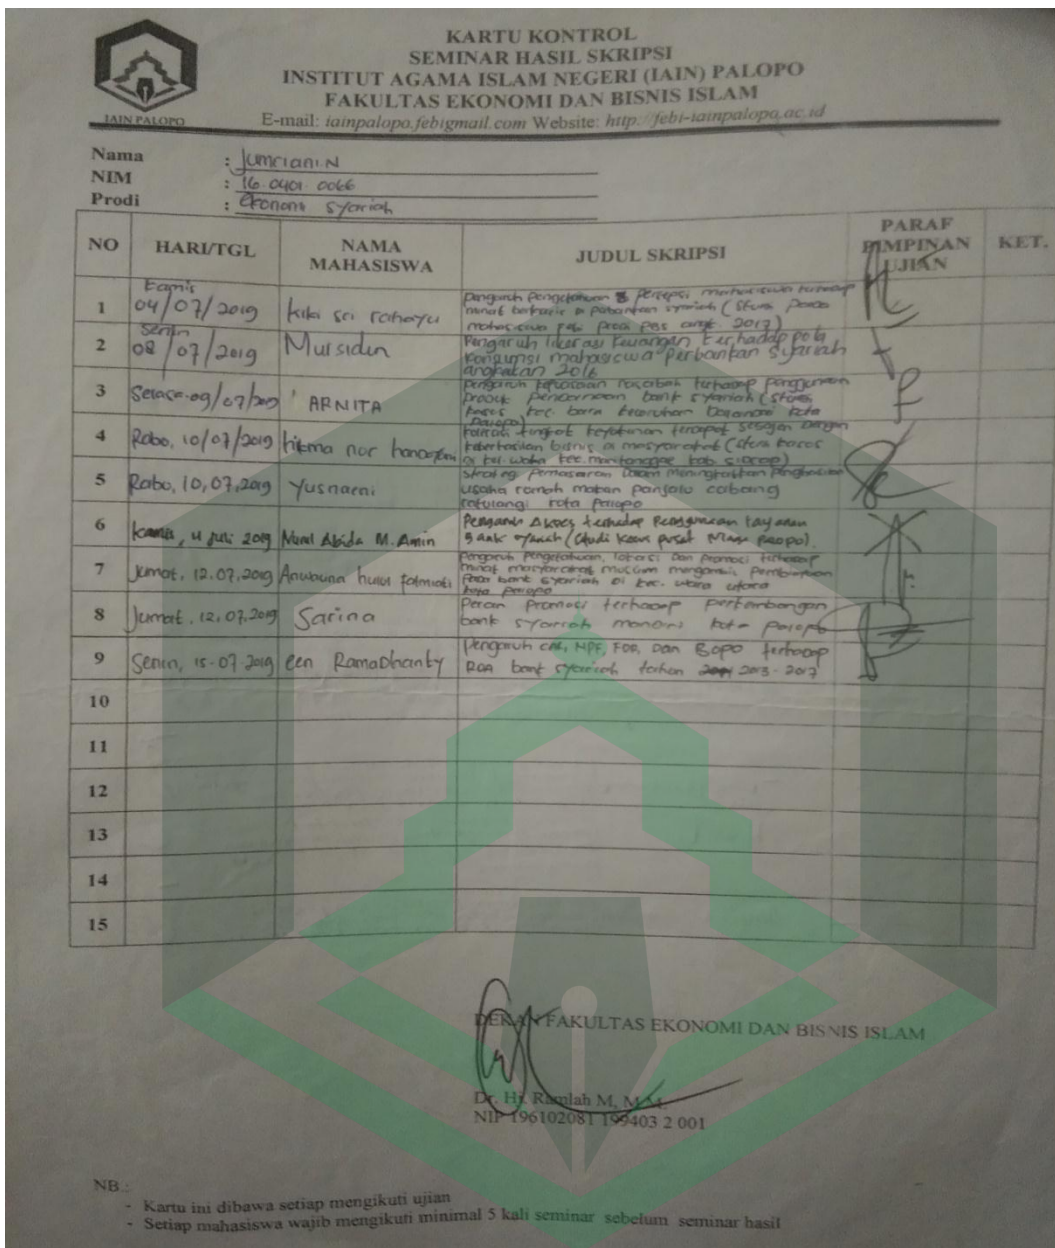 KARTU KONTROL
SEMINAR HASIL SKRIPSI
INSTITUT AGAMA ISLAM NEGERI (IAIN) PALOPO
FAKULTAS EKONOMI DAN BISNIS ISLAM
IAIN PALOPO
E-mail: iainpalopo.febigmail.com Website: http://febi-iainpalopo.ac.id
Nama : Jumriani.N
NIM : 16.0401.0066
Prodi : ekonomi syariah
NO HARI/TGL NAMA MAHASISWA JUDUL SKRIPSI PARAF PIMPINAN UJIAN KET.
1 Kamis 04/07/2019 kiki sri rahayu
pengaruh pengetahuan & persepsi mahasiswa terhadap
minat berkarir di perbankan syariah (studi pada
mahasiswa febi prodi pbs angk. 2017)
2 Senin 08/07/2019 Mursidin
Pengaruh literasi keuangan terhadap pola
konsumsi mahasiswa perbankan syariah
angkatan 2016
3 Selasa-09/07/2019 ARNITA
pengaruh kepuasan nasabah terhadap penggunaan
produk bank syariah (studi
kasus kec. bara kelurahan kota
palopo)
4 Rabo, 10/07/2019 hikma nor
tingkat terhadap dengan
keberhasilan bisnis di masyarakat (studi kasus
di kel. kec. kab. sidrap)
5 Rabo, 10,07,2019 Yusnaeni
strategi pemasaran dalam meningkatkan penghasilan
usaha rumah makan cabang
ratulangi kota palopo
6 kamis, 11 juli 2019 Nurul Abida M. Amin
Pengaruh Akses terhadap Penggunaan layanan
Bank syariah (Studi kasus pusat Niaga palopo).
7 Jumat, 12.07,2019
Pengaruh pengetahuan, lokasi dan promosi terhadap
minat masyarakat muslim mengambil pembiayaan
pada bank syariah di kec. wara utara
kota palopo
8 Jumat, 12,07,2019 Sarina
Peran promosi terhadap perkembangan
bank syariah mandiri kota palopo
9 Senin, 15-07-2019 een Ramadhanty
Pengaruh CAR, NPF, FDR, Dan BOPO terhadap
ROA bank syariah tahun 2013 - 2017
10
11
12
13
14
15
DEKAN FAKULTAS EKONOMI DAN BISNIS ISLAM
Dr. Hj. Ramlah M, M.M.
NIP 196102081 199403 2 001
NB.:
- Kartu ini dibawa setiap mengikuti ujian
- Setiap mahasiswa wajib mengikuti minimal 5 kali seminar sebelum seminar hasil